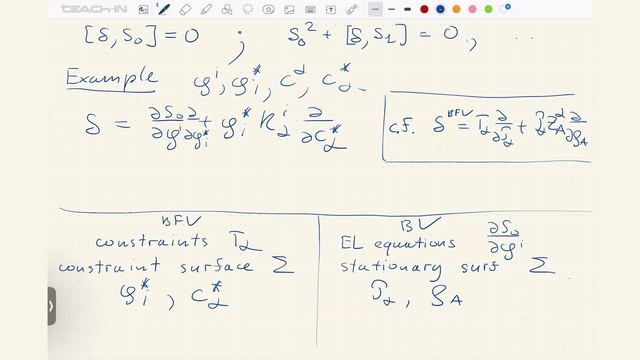 TEACH-IN
[δ, S₀] = 0 ; S₀² + [δ, S₁] = 0 , ...
Example φⁱ, φᵢ*, C^α, C_α*.
δ = ∂S₀/∂φⁱ ∂/∂φᵢ* + φᵢ* R_αⁱ ∂/∂C_α*
c.f. δ^BFV = T_α ∂/∂𝒯_α + 𝒯_α Z_A^α ∂/∂ρ_A
BFV
constraints T_α
constraint surface Σ
φᵢ*, C_α*
BV
EL equations ∂S₀/∂φⁱ
stationary surf Σ
𝒯_α, ρ_A